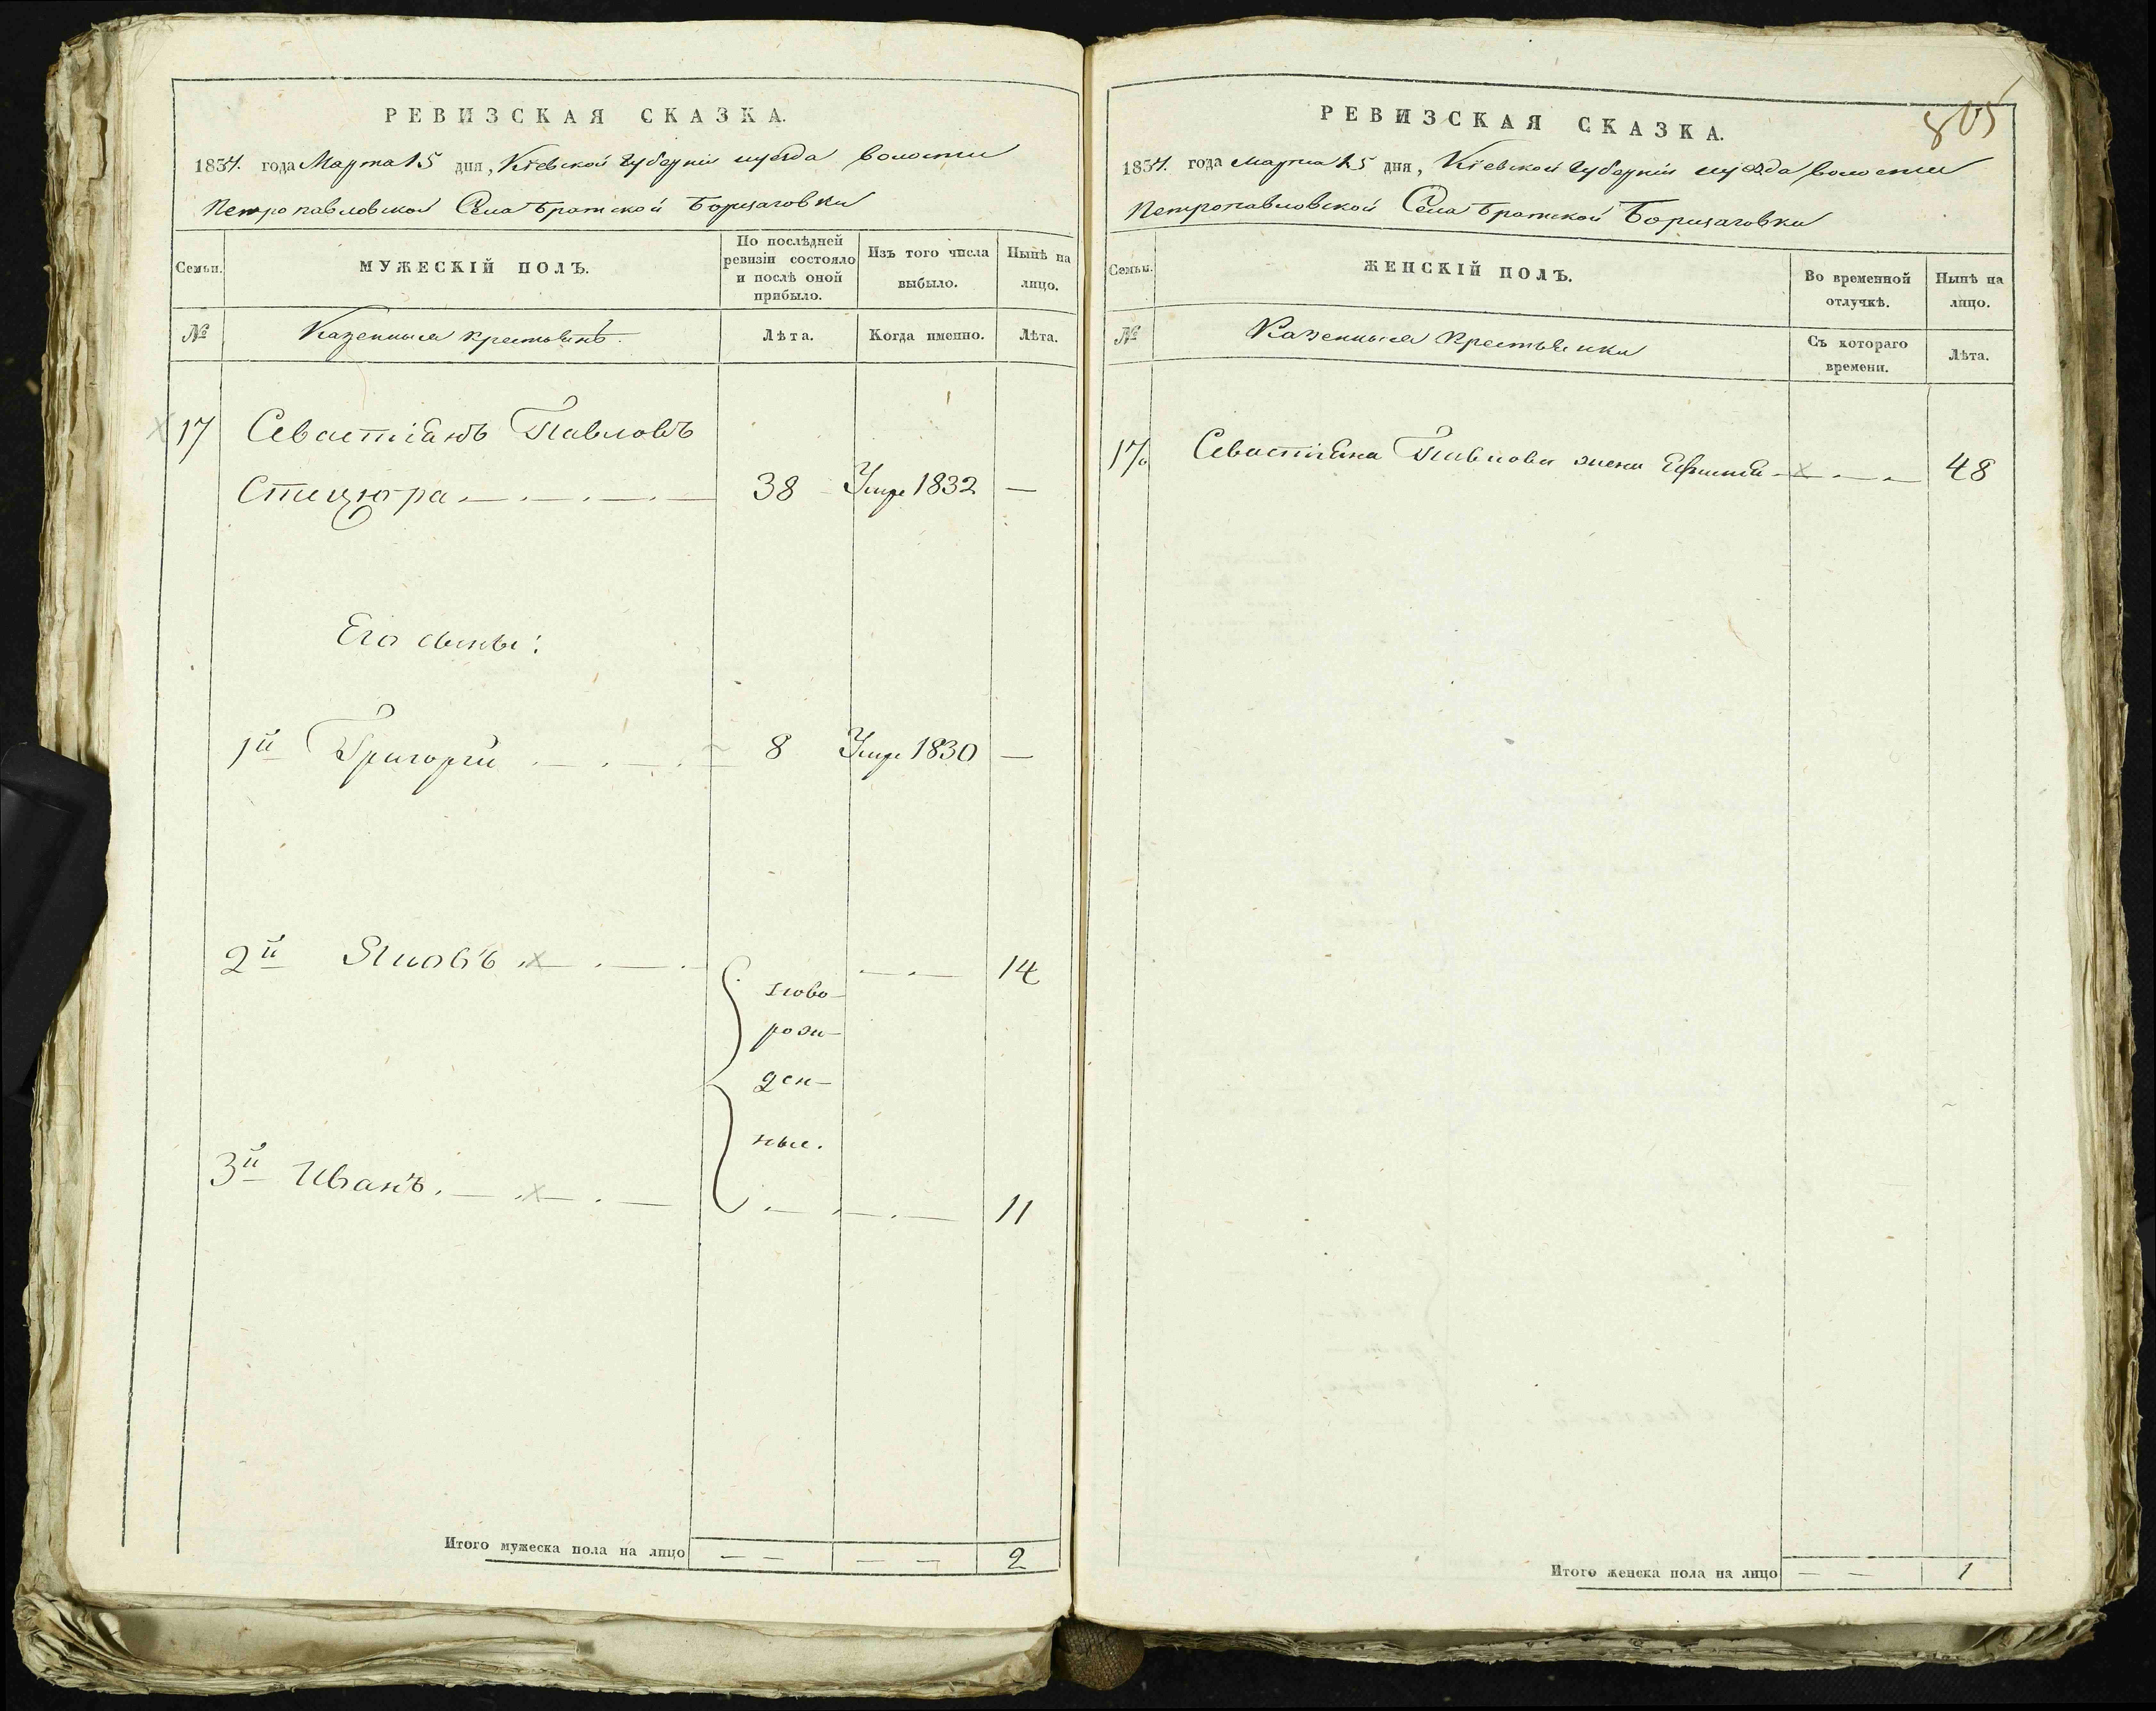 РЕВИЗСКАЯ СКАЗКА.
1834. года Марта 15 дня, Кіевской Губерніи и уезда волости
Петропавловской Села Братской Борщаговки
Семьи.
МУЖЕСКІЙ ПОЛЪ.
По послѣдней ревизіи состояло и послѣ оной прибыло.
Изъ того числа выбыло.
Нынѣ на лицо.
№
Казенныя крестьянѣ.
Лѣта.
Когда именно.
Лѣта.
17 Севастіянъ Павловъ
Стецюра 38 Умре 1832 —
Его сыны:
1й Григорій 8 Умре 1830 —
2й Яковъ 14
ново-
рож-
ден-
ные.
3й Иванъ 11
Итого мужеска пола на лицо — — — — 2
805
РЕВИЗСКАЯ СКАЗКА.
1834. года Марта 15 дня, Кіевской Губерніи и уезда волости
Петропавловской Села Братской Борщаговки
Семьи.
ЖЕНСКІЙ ПОЛЪ.
Во временной отлучкѣ.
Нынѣ на лицо.
№
Казенныя Крестьянки
Съ котораго времени.
Лѣта.
17 Севастіяна Павлова жена 48
Итого женска пола на лицо — — 1